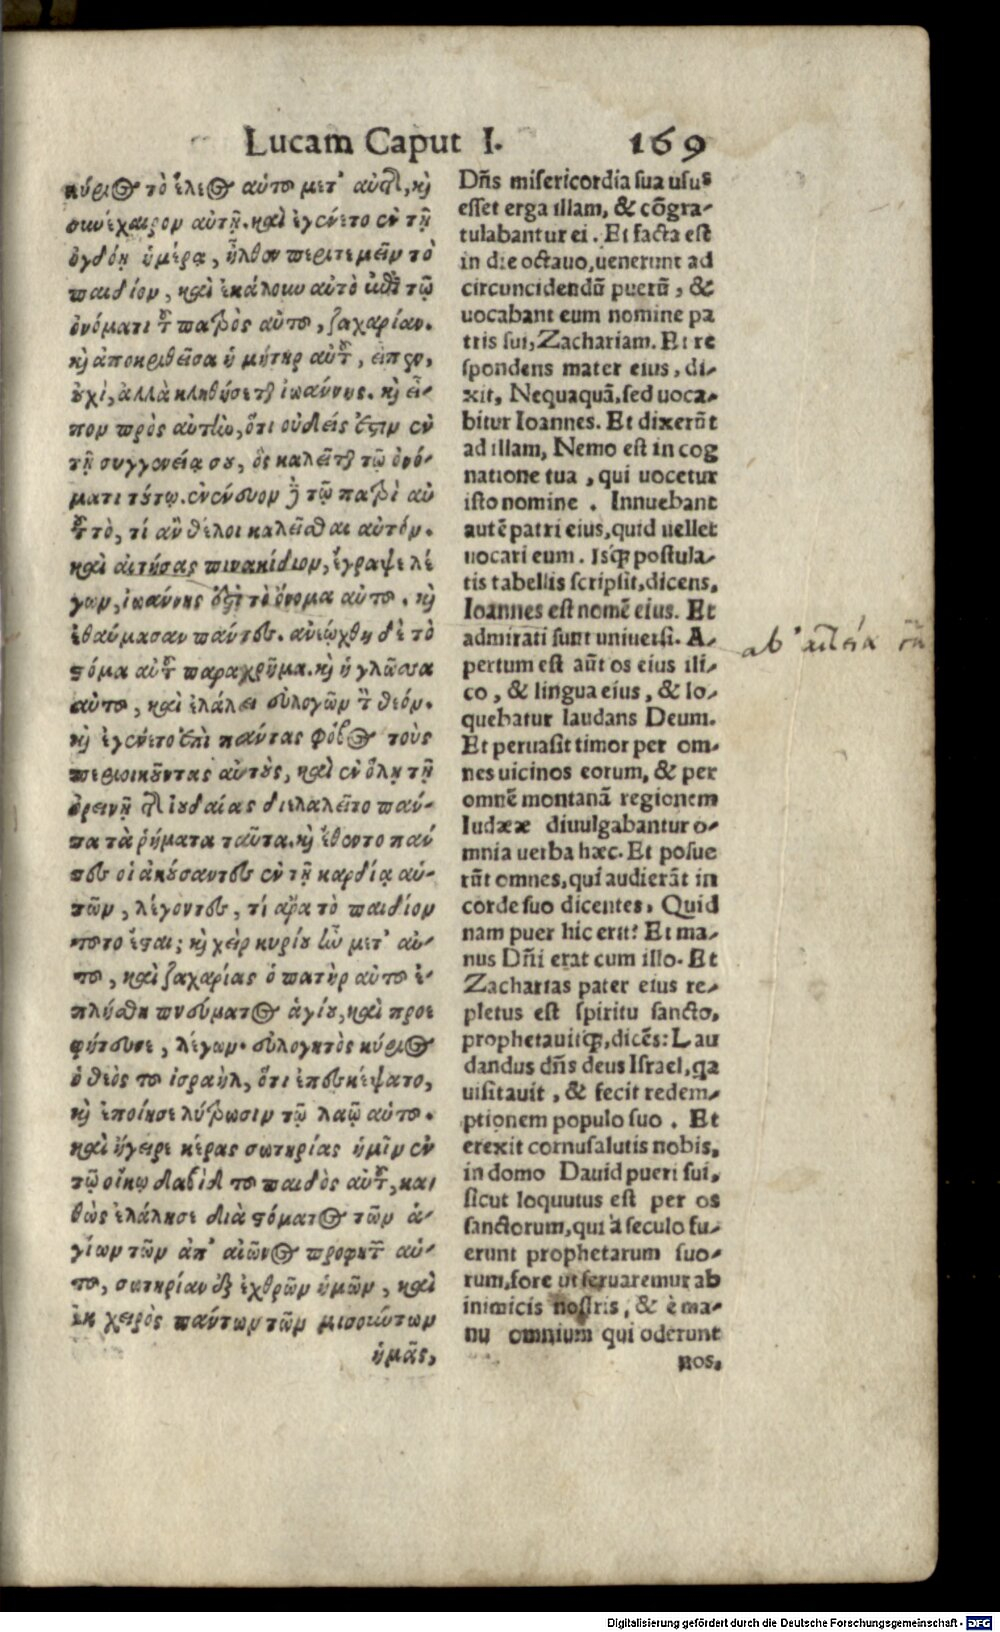 Lucam Caput I. 169
κύριος τὸ ἔλεος αὐτοῦ μετ' αὐτῆς, καὶ
συνέχαιρον αὐτῇ. καὶ ἐγένετο ἐν τῇ
ὀγδόῃ ἡμέρᾳ, ἦλθον περιτεμεῖν τὸ
παιδίον, καὶ ἐκάλουν αὐτὸ ἐπὶ τῷ
ὀνόματι τοῦ πατρὸς αὐτοῦ, ζαχαρίαν.
καὶ ἀποκριθεῖσα ἡ μήτηρ αὐτοῦ, εἶπεν,
οὐχὶ, ἀλλὰ κληθήσεται ἰωάννης. καὶ εἶ-
πον πρὸς αὐτὴν, ὅτι οὐδείς ἐστιν ἐν
τῇ συγγενείᾳ σου, ὃς καλεῖται τῷ ὀνό-
ματι τούτῳ. ἐνένευον δὲ τῷ πατρὶ αὐ
τοῦ τὸ, τί ἂν θέλοι καλεῖσθαι αὐτόν.
καὶ αἰτήσας πινακίδιον, ἔγραψε λέ
γων, ἰωάννης ἐστὶ τὸ ὄνομα αὐτοῦ. καὶ
ἐθαύμασαν πάντες. ἀνεῴχθη δὲ τὸ
στόμα αὐτοῦ παραχρῆμα. καὶ ἡ γλῶσσα
αὐτοῦ, καὶ ἐλάλει εὐλογῶν τὸν θεόν.
καὶ ἐγένετο ἐπὶ πάντας φόβος τοὺς
περιοικοῦντας αὐτούς, καὶ ἐν ὅλῃ τῇ
ὀρεινῇ τῆς ἰουδαίας διελαλεῖτο πάν-
τα τὰ ῥήματα ταῦτα. καὶ ἔθεντο πάν
τες οἱ ἀκούσαντες ἐν τῇ καρδίᾳ αὐ-
τῶν, λέγοντες, τί ἄρα τὸ παιδίον
τοῦτο ἔσται; καὶ χεὶρ κυρίου ἦν μετ' αὐ-
τοῦ, καὶ ζαχαρίας ὁ πατὴρ αὐτοῦ ἐ-
πλήσθη πνεύματος ἁγίου, καὶ προε
φήτευσε, λέγων. εὐλογητὸς κύριος
ὁ θεὸς τοῦ ἰσραὴλ, ὅτι ἐπεσκέψατο,
καὶ ἐποίησε λύτρωσιν τῷ λαῷ αὐτοῦ.
καὶ ἤγειρε κέρας σωτηρίας ἡμῖν ἐν
τῷ οἴκῳ δαβὶδ τοῦ παιδὸς αὐτοῦ, κα
θὼς ἐλάλησε διὰ στόματος τῶν ἁ-
γίων τῶν ἀπ' αἰῶνος προφητῶν αὐ-
τοῦ, σωτηρίαν ἐξ ἐχθρῶν ἡμῶν, καὶ
ἐκ χειρὸς πάντων τῶν μισούντων
ἡμᾶς,
Dñs misericordia sua usus
esset erga illam, & cõgra-
tulabantur ei. Et facta est
in die octauo, uenerunt ad
circuncidendũ puerũ, &
uocabant eum nomine pa
tris sui, Zachariam. Et re
spondens mater eius, di-
xit, Nequaquã, sed uoca-
bitur Ioannes. Et dixerũt
ad illam, Nemo est in cog
natione tua, qui uocetur
isto nomine. Innuebant
autẽ patri eius, quid uellet
uocari eum. Isq; postula-
tis tabellis scripsit, dicens,
Ioannes est nomẽ eius. Et
admirati sunt uniuersi. A-
pertum est aũt os eius ili-
co, & lingua eius, & lo-
quebatur laudans Deum.
Et peruasit timor per om-
nes uicinos eorum, & per
omnẽ montanã regionem
Iudææ diuulgabantur o-
mnia uerba hæc. Et posue
rũt omnes, qui audierãt in
corde suo dicentes, Quid
nam puer hic erit? Et ma-
nus Dñi erat cum illo. Et
Zacharias pater eius re-
pletus est spiritu sancto,
prophetauitq;, dicẽs: Lau
dandus dñs deus Israel, qa
uisitauit, & fecit redem-
ptionem populo suo. Et
erexit cornu salutis nobis,
in domo Dauid pueri sui,
sicut loquutus est per os
sanctorum, qui à seculo fu-
erunt prophetarum suo-
rum, fore ut seruaremur ab
inimicis nostris, & è ma-
nu omnium qui oderunt
nos,
ab
Digitalisierung gefördert durch die Deutsche Forschungsgemeinschaft - DFG